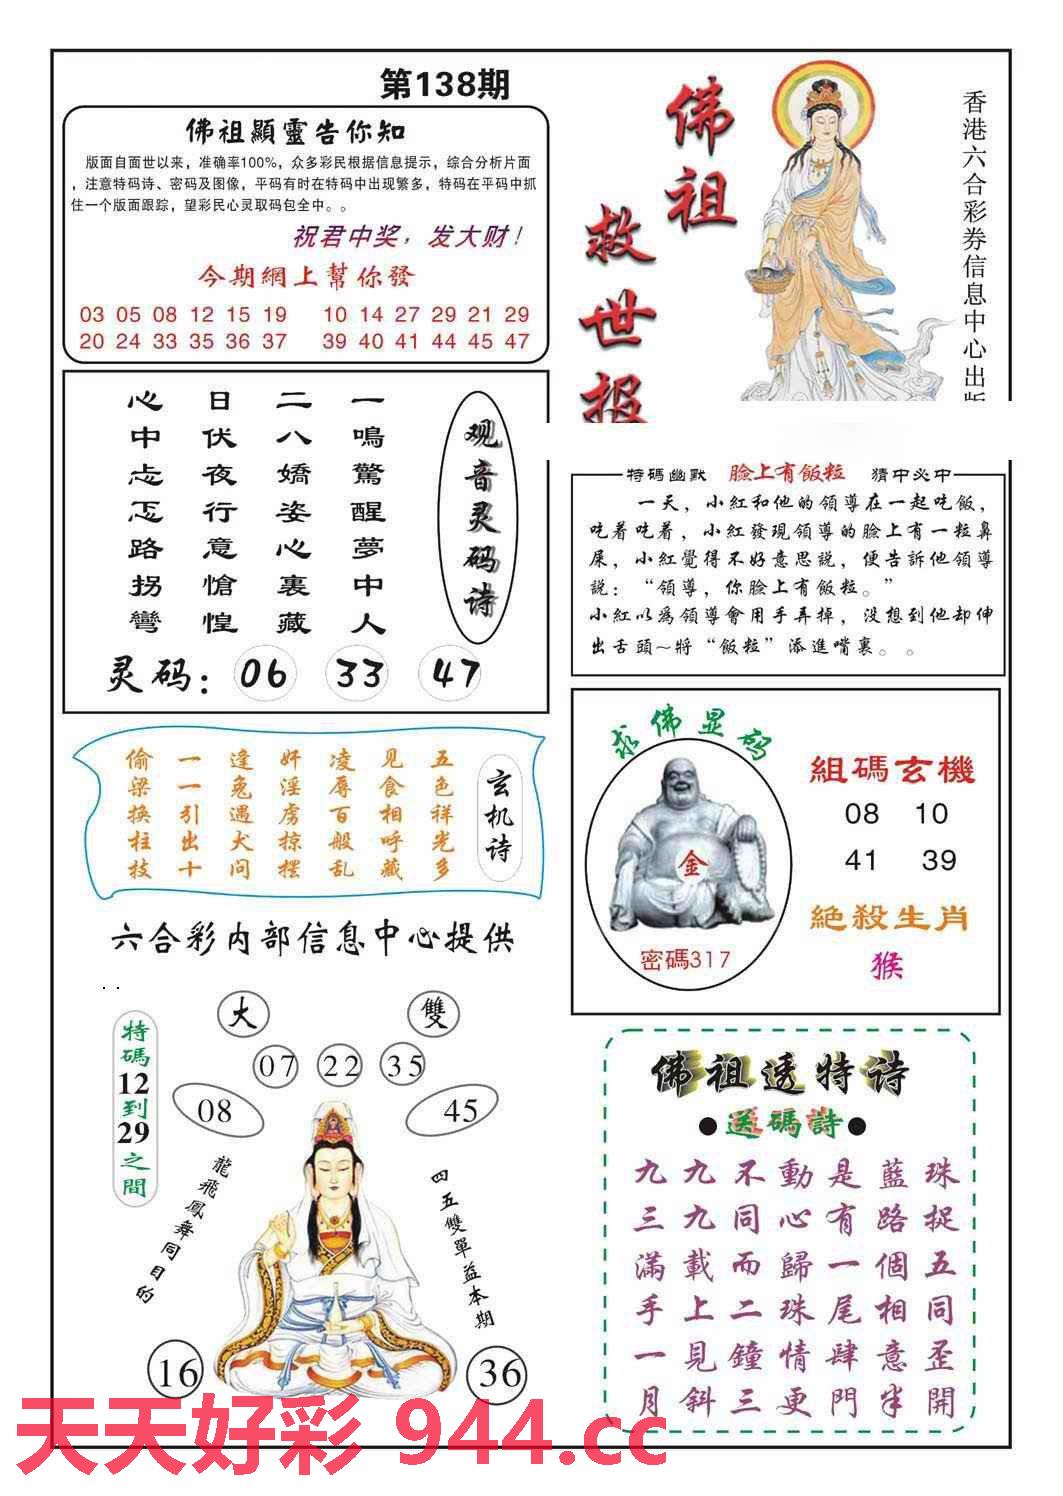 第138期
佛祖顯靈告你知
版面自面世以来，准确率100%，众多彩民根据信息提示，综合分析片面
，注意特码诗、密码及图像，平码有时在特码中出现繁多，特码在平码中抓
住一个版面跟踪，望彩民心灵取码包全中。。
祝君中奖，发大财！
今期網上幫你發
03 05 08 12 15 19 10 14 27 29 21 29
20 24 33 35 36 37 39 40 41 44 45 47
佛祖
救世报
香港六合彩券信息中心出版
观音灵码诗
一鳴驚醒夢中人
二八嬌姿心裏藏
日伏夜行意愴惶
心中忐忑路拐彎
灵码：06 33 47
特碼幽默 臉上有飯粒 猜中必中
一天，小紅和他的領導在一起吃飯，
吃着吃着，小紅發現領導的臉上有一粒鼻
屎，小紅覺得不好意思説，便告訴他領導
説：“領導，你臉上有飯粒。”
小紅以爲領導會用手弄掉，没想到他却伸
出舌頭～將“飯粒”添進嘴裏。。
玄机诗
五色祥光多
见食相呼藏
凌辱百般乱
奸淫虏掠摆
逢兔遇犬问
一一引出十
偷梁换柱技
求佛显码
金
密碼317
組碼玄機
08 10
41 39
絶殺生肖
猴
六合彩内部信息中心提供
大
雙
07 22 35
08
45
特碼12到29之間
龍飛鳳舞同目的
四五雙單益本期
16
36
佛祖透特诗
●送碼詩●
九九不動是藍珠
三九同心有路捉
滿載而歸一個五
手上二珠尾相同
一見鐘情肆意歪
月斜三更門半開
天天好彩 944.cc